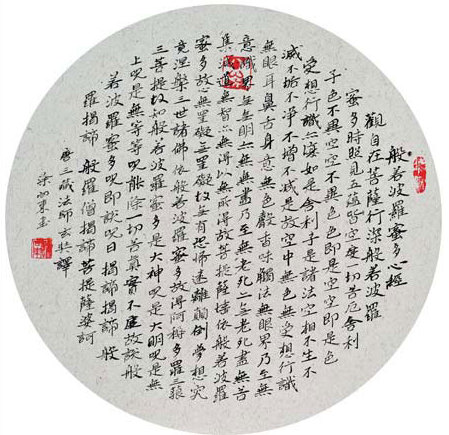 般若波羅蜜多心經
觀自在菩薩行深般若波羅
蜜多時照見五蘊皆空度一切苦厄舍利
子色不異空空不異色色即是空空即是色
受想行識亦復如是舍利子是諸法空相不生不
滅不垢不淨不增不減是故空中無色無受想行識
無眼耳鼻舌身意無色聲香味觸法無眼界乃至無
意識界無無明亦無無明盡乃至無老死亦無老死盡無苦
集滅道無智亦無得以無所得故菩提薩埵依般若波羅
蜜多故心無罣礙無罣礙故無有恐怖遠離顛倒夢想究
竟涅槃三世諸佛依般若波羅蜜多故得阿耨多羅三藐
三菩提故知般若波羅蜜多是大神咒是大明咒是無
上咒是無等等咒能除一切苦真實不虛故說般
若波羅蜜多咒即說咒曰 揭諦揭諦 般
羅揭諦 般羅僧揭諦 菩提薩婆訶
唐三藏法師玄奘譯